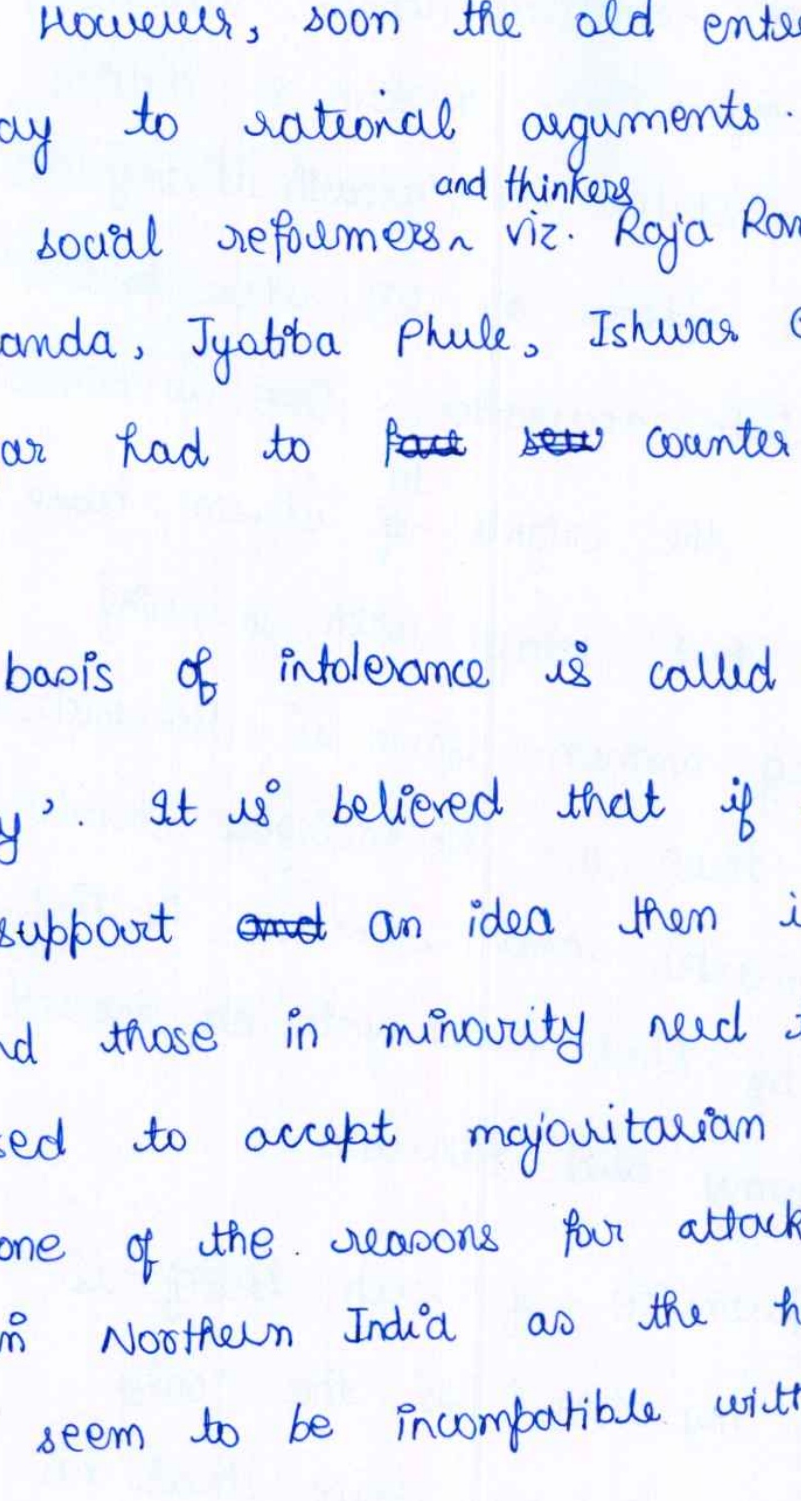 However, soon the old ente
ay to rational arguments.
and thinkers
social reformers^ viz. Raja Ram
anda, Jyatiba Phule, Ishwar C
ar had to counter
basis of intolerance is called
y'. It is believed that if
support and an idea then i
nd those in minority need
sed to accept majoritarian
one of the reasons for attack
in Northern India as the h
seem to be incompatible with